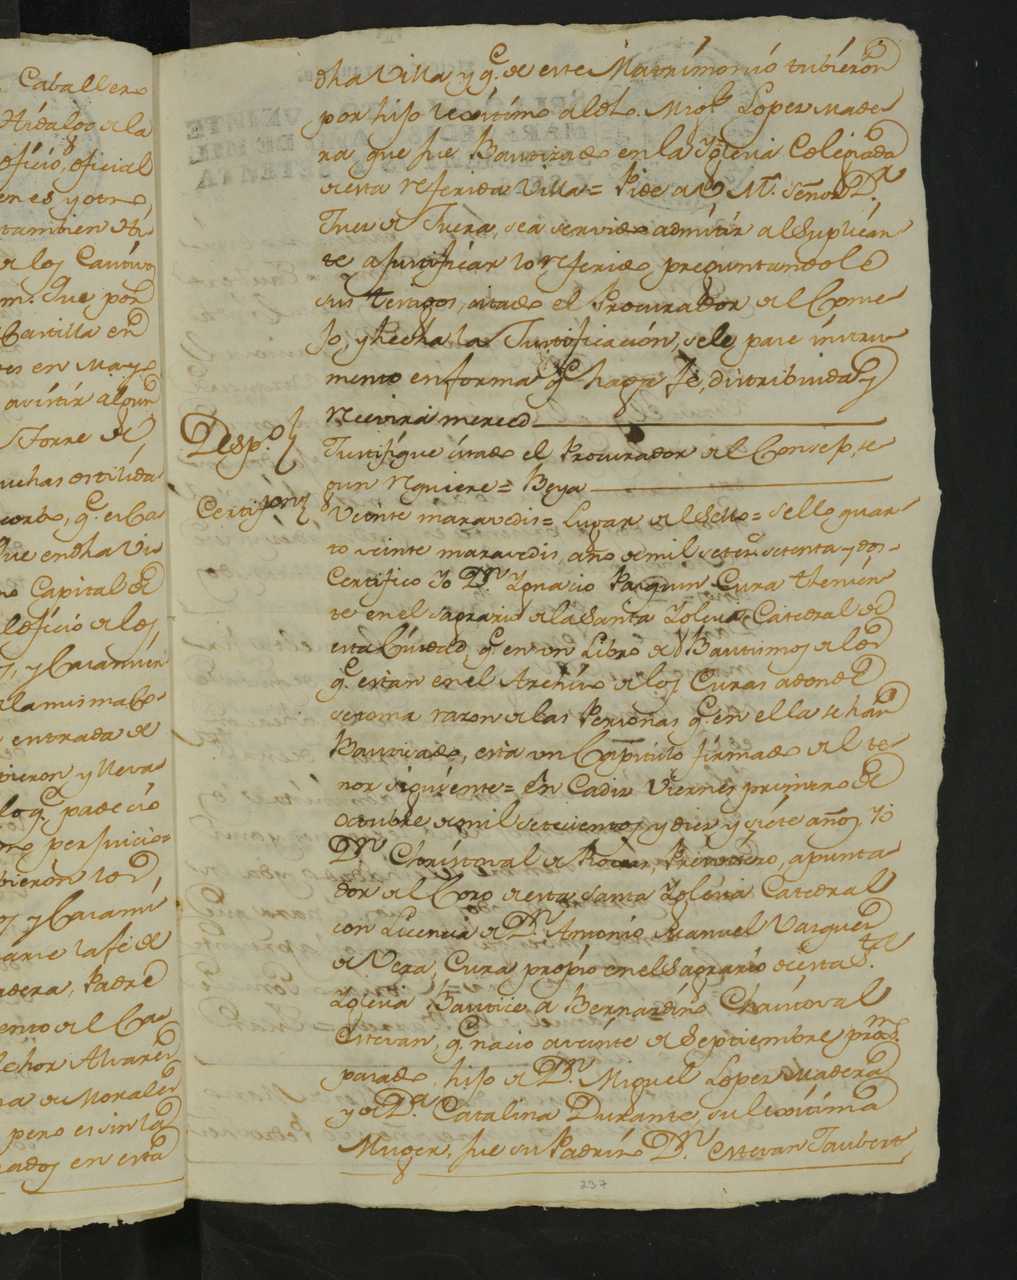 Caballero
Hidalgo de la
oficio, oficial
en es y otro
tambien
de los Cautivos
m. Que por
Castilla en
en Mayo
avistir algun
Torre de
muchas
que en dha Vi
Capital de
el oficio de los
y Caiamien
la misma
entrada de
vieron y lleva
lo q.e padecio
perjuicio
vieron los
y Caiami
la fe de
adera, Padre
ento del Ca
lchor Alvarez
na de Morales
pero es sin la
ados en esta
dha Villa y q.e de este Matrimonio tubieron
por hijo lexitimo al dho. Mig.l Lopez Made
ra que fue Bautizado en la Iglecia Colegiada
de esta referida Villa = Pide a V M.d Señor D.n
Juez de Fuera, sea servido admitir al Suplican
te a justificar lo referido, preguntandole
sus testigos, citado el Procurador del Conse
jo, y hecha la Justificacion, se le pase instru
mento en forma q.e haga fe, distribuida y
Recivirá merced
Desp.o
Justifique citado el Procurador del Consejo, se
gun requiere = Beya
Certif.on
Veinte maravedis = Lugar del Sello = Sello quar
to veinte maravedis, año de mil setec.s setenta y dos
Certifico Yo D.n Ignacio Parquin Cura thenien
te en el Sagrario de la Santa Iglecia Catedral de
esta Ciudad, q.e en un Libro de Bautismos de los
q.e estan en el Archivo de los Curas adonde
se toma razon de las Personas q.e en ella se han
Bautizado, está un Capitulo firmado del te
nor siguiente = En Cadiz Viernes primero de
Octubre de mil setecientos y diez y siete años, Yo
D.n Christoval de Rocas, Presvitero, apunta
dor del Coro de esta Santa Iglecia Catedral
con Licencia de D.n Antonio Manuel Vasquez
de Vera, Cura propio en el Sagrario de esta S.ta
Iglecia Bautice a Bernardino Christoval
Estevan, q.e nacio a veinte de Septiembre prox.mo
pasado, hijo de D.n Miguel Lopez Madera
y de D.a Catalina Durante, su lexitima
Muger, fue su Padrino D.n Estevan Jaubert
237